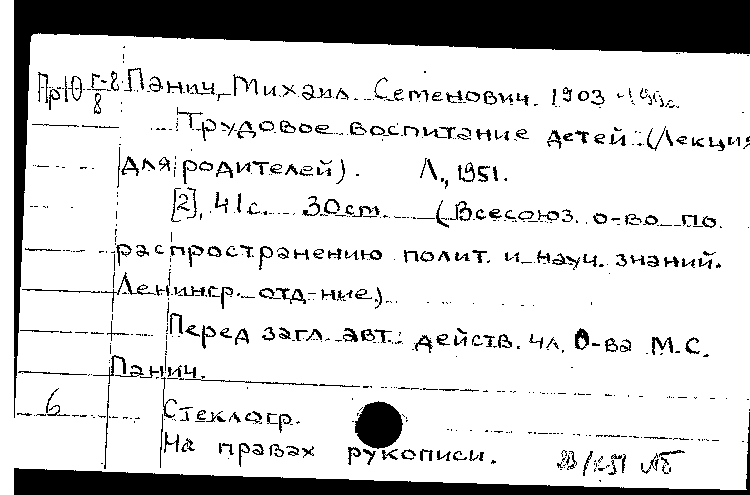 Пр10 г-8/8 Панич, Михаил Семенович. 1903
Трудовое воспитание детей: (Лекция
для родителей). Л., 1951.
[2], 41с. 30cm. (Всесоюз. о-во по
распространению полит. и науч. знаний.
Ленингр. отд-ние)
Перед загл. авт.: действ. чл. О-ва М.С.
Панич.
6 Стеклогр.
На правах рукописи.